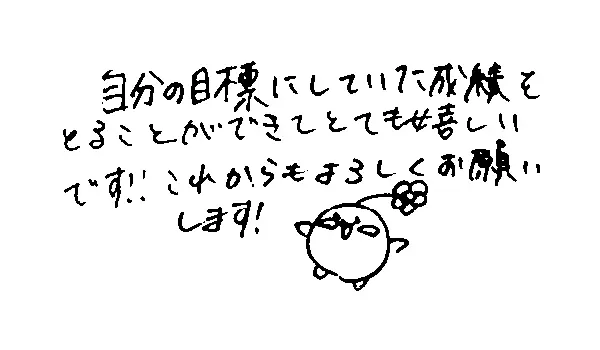 自分の目標にしていた成績を
とることができてとても嬉しい
です!! これからもよろしくお願い
します!